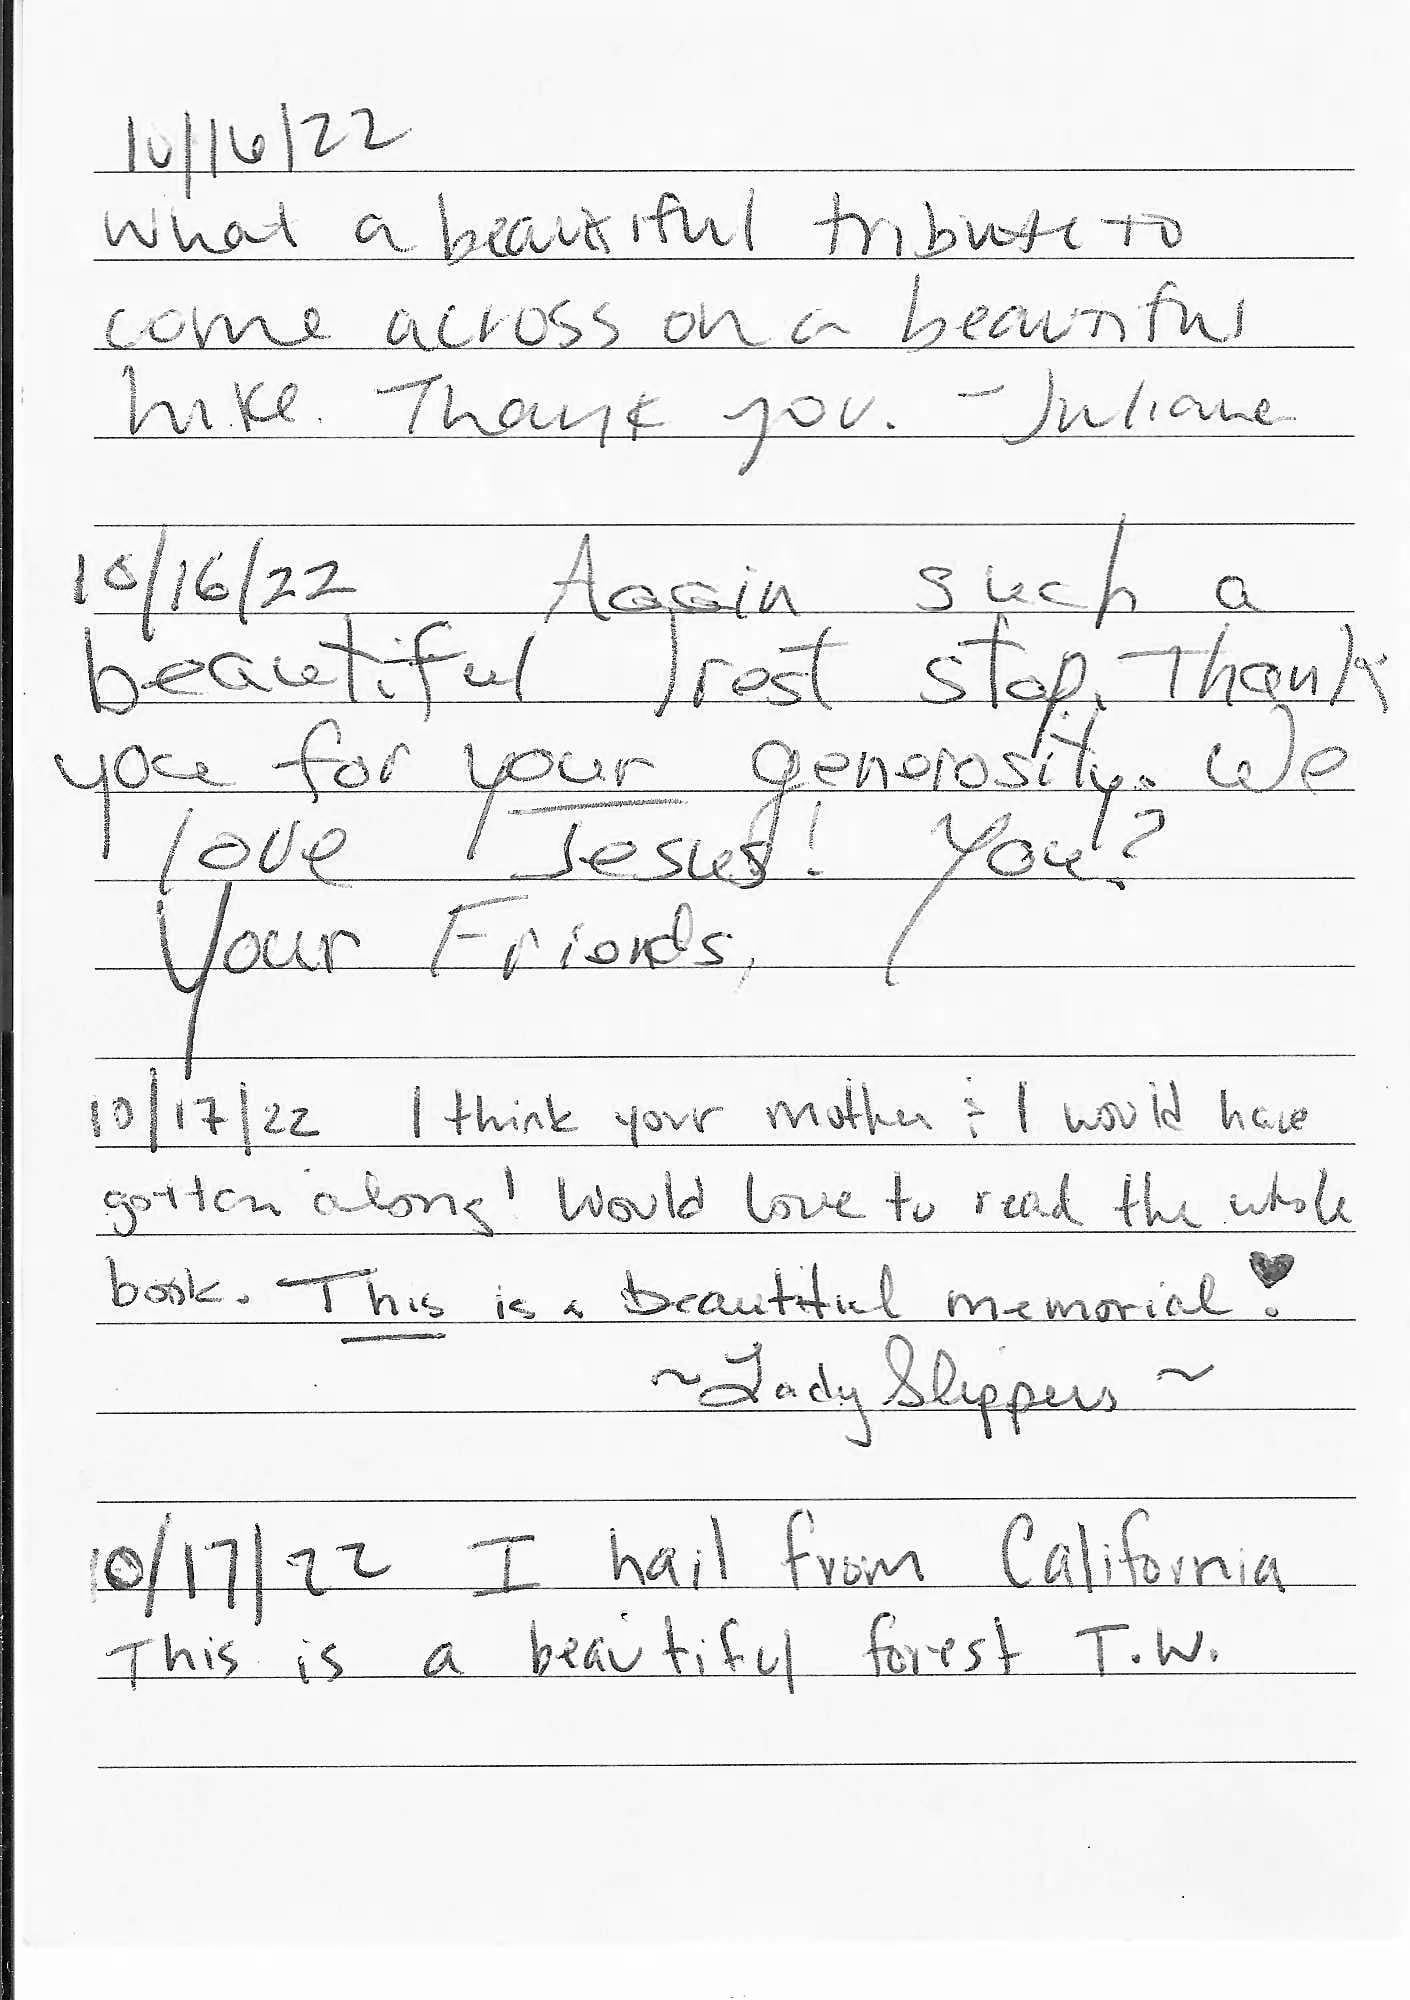 10/16/22
What a beautiful tribute to
come across on a beautiful
hike. Thank you. - Juliane
10/16/22 Again such a
beautiful rest stop. Thank
you for your generosity. We
love Jesus! You?
Your Friends,
10/17/22 I think your mother & I would have
gotten along! Would love to read the whole
book. This is a beautiful memorial! ♥
~Lady Slippers~
10/17/22 I hail from California
This is a beautiful forest T.W.